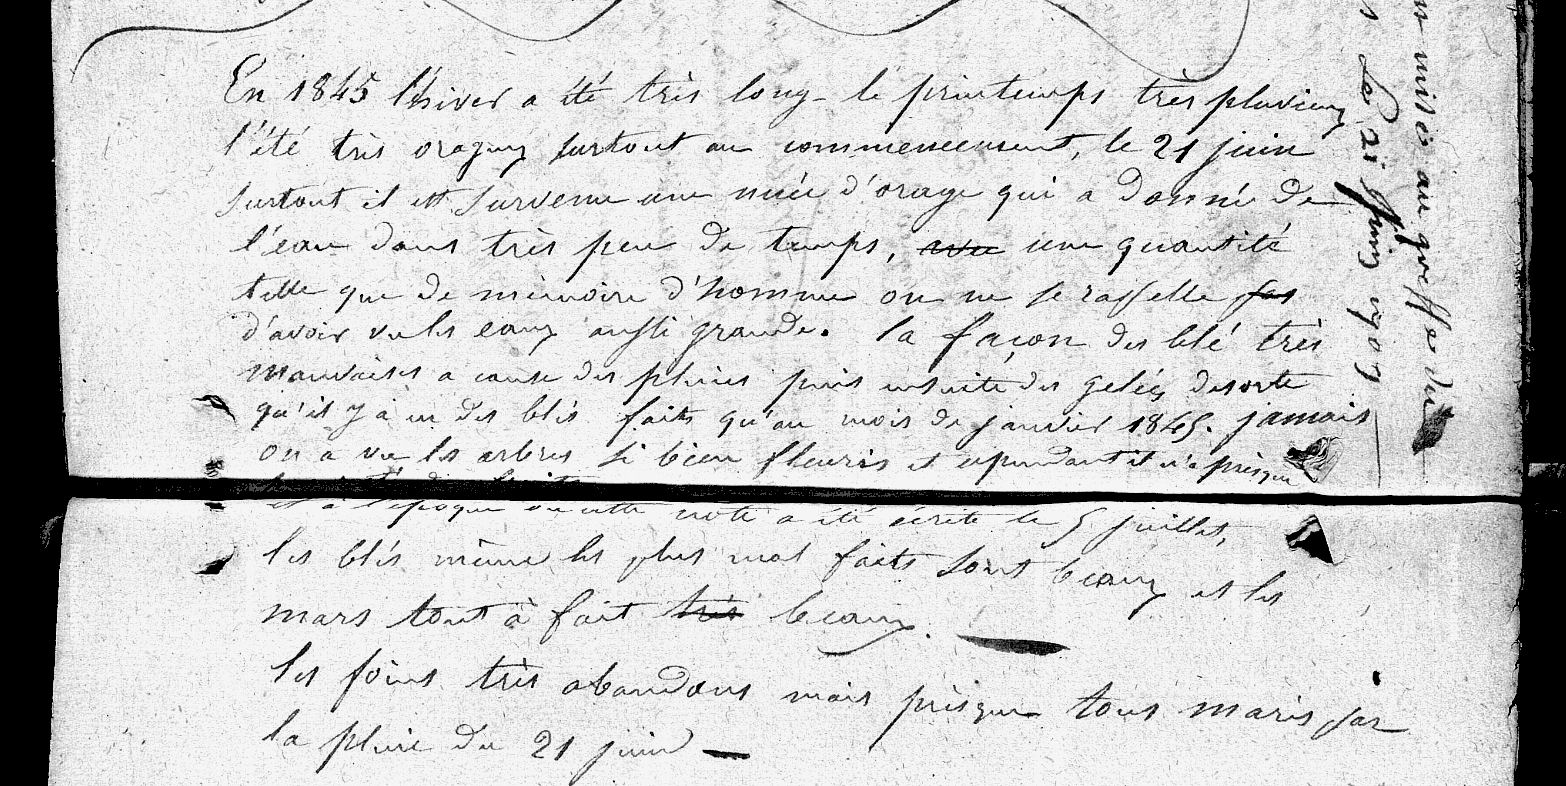 En 1845 l'hiver a été très long - le printemps très pluvieux
l'été très orageux surtout au commencement, le 21 juin
surtout il est survenu une nuée d'orage qui a donné de
l'eau dans très peu de temps, avec une quantité
telle que de mémoire d'homme on ne se rappelle pas
d'avoir vu les eaux aussi grande. la façon des blé très
mauvaises a cause des pluies puis ensuite des gelées desorte
qu'il y à eu des blés faits qu'au mois de janvier 1845. jamais
on a vu les arbres si bien fleuris et cependant il n'a presque
et à l'époque ou cette note a été écrite le 5 juillet,
les blés même les plus mal faits sont beaux et les
mars tout à fait très beaux.
les foins très abandans mais presque tous maris par
la pluie du 21 juin
au greffe du